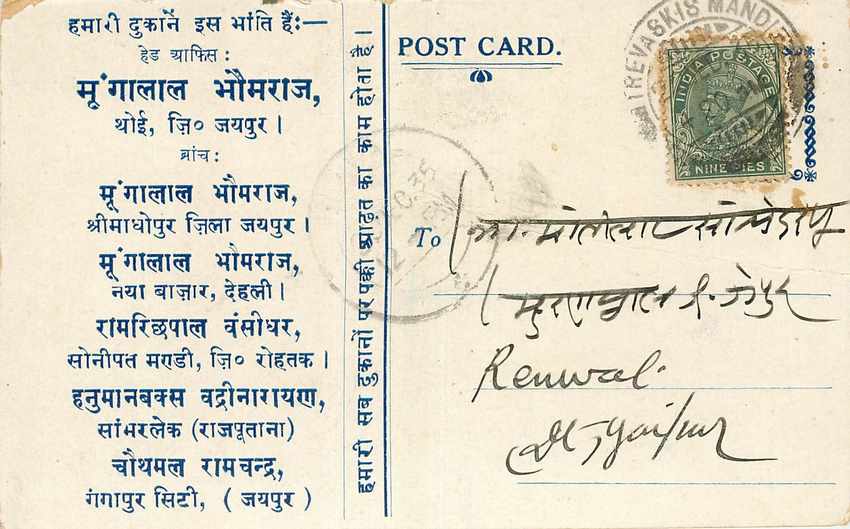 हमारी दुकानें इस भांति हैं:—
हेड आफिस:
मूंगालाल भौमराज,
थोई, ज़ि० जयपुर।
ब्रांच:
मूंगालाल भौमराज,
श्रीमाधोपुर ज़िला जयपुर।
मूंगालाल भौमराज,
नया बाज़ार, देहली।
रामरिछपाल वंसीधर,
सोनीपत मण्डी, ज़ि० रोहतक।
हनुमानबक्स वद्रीनारायण,
सांभरलेक (राजपूताना)
चौथमल रामचन्द्र,
गंगापुर सिटी, (जयपुर)
हमारी सब दुकानों पर पक्की आढ़त का काम होता है।
POST CARD.
TREVASKIS MANDI
INDIA POSTAGE
NINE PIES
DEC. 35
12
To
Renwal.
Dt, Jaipur